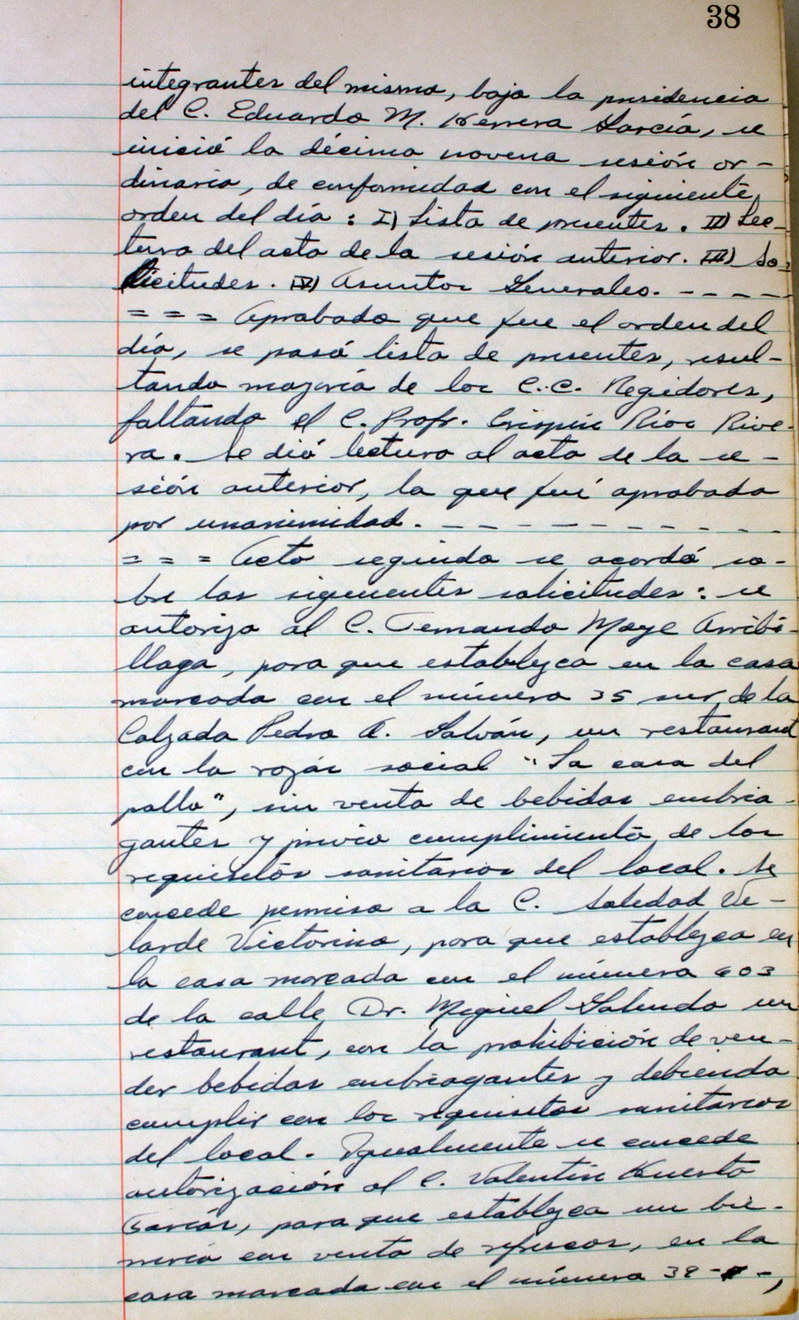 38
integrantes del mismo, bajo la presidencia
del C. Eduardo M. Herrera García, se
inició la décima novena sesión or-
dinaria, de conformidad con el siguiente
orden del día : I) Lista de presentes. II) Lec-
tura del acta de la sesión anterior. III) So-
licitudes. IV) Asuntos Generales. - - - -
= = = Aprobado que fue el orden del
día, se pasó lista de presentes, resul-
tando mayoría de los C.C. Regidores,
faltando el C. Profr. Crispín Ríos Rive-
ra. Se dió lectura al acta de la se-
sión anterior, la que fué aprobada
por unanimidad. - - - - - - - - - -
= = = Acto seguido se acordó so-
bre las siguientes solicitudes : se
autoriza al C. Fernando Maye Arribi-
llaga, para que establezca en la casa
marcada con el número 35 sur de la
Calzada Pedro A. Galván, un restaurant
con la razón social "La casa del
pollo", sin venta de bebidas embria-
gantes y previo cumplimiento de los
requisitos sanitarios del local. Se
concede permiso a la C. Soledad Ve-
larde Victorino, para que establezca en
la casa marcada con el número 603
de la calle Dr. Miguel Galindo un
restaurant, con la prohibición de ven-
der bebidas embriagantes y debiendo
cumplir con los requisitos sanitarios
del local. Igualmente se concede
autorización al C. Valentín Huerta
para que establezca un bi-
con venta de refrescos, en la
casa marcada con el número 38 - - ,